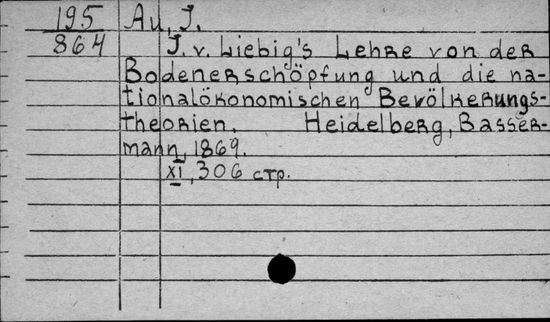 195 Au, J.
864 J. v. Liebig's Lehre von der
Bodenerschöpfung und die na-
tionalökonomischen Bevölkerungs-
theorien. Heidelberg, Basser-
mann, 1869.
XI, 306 стр.